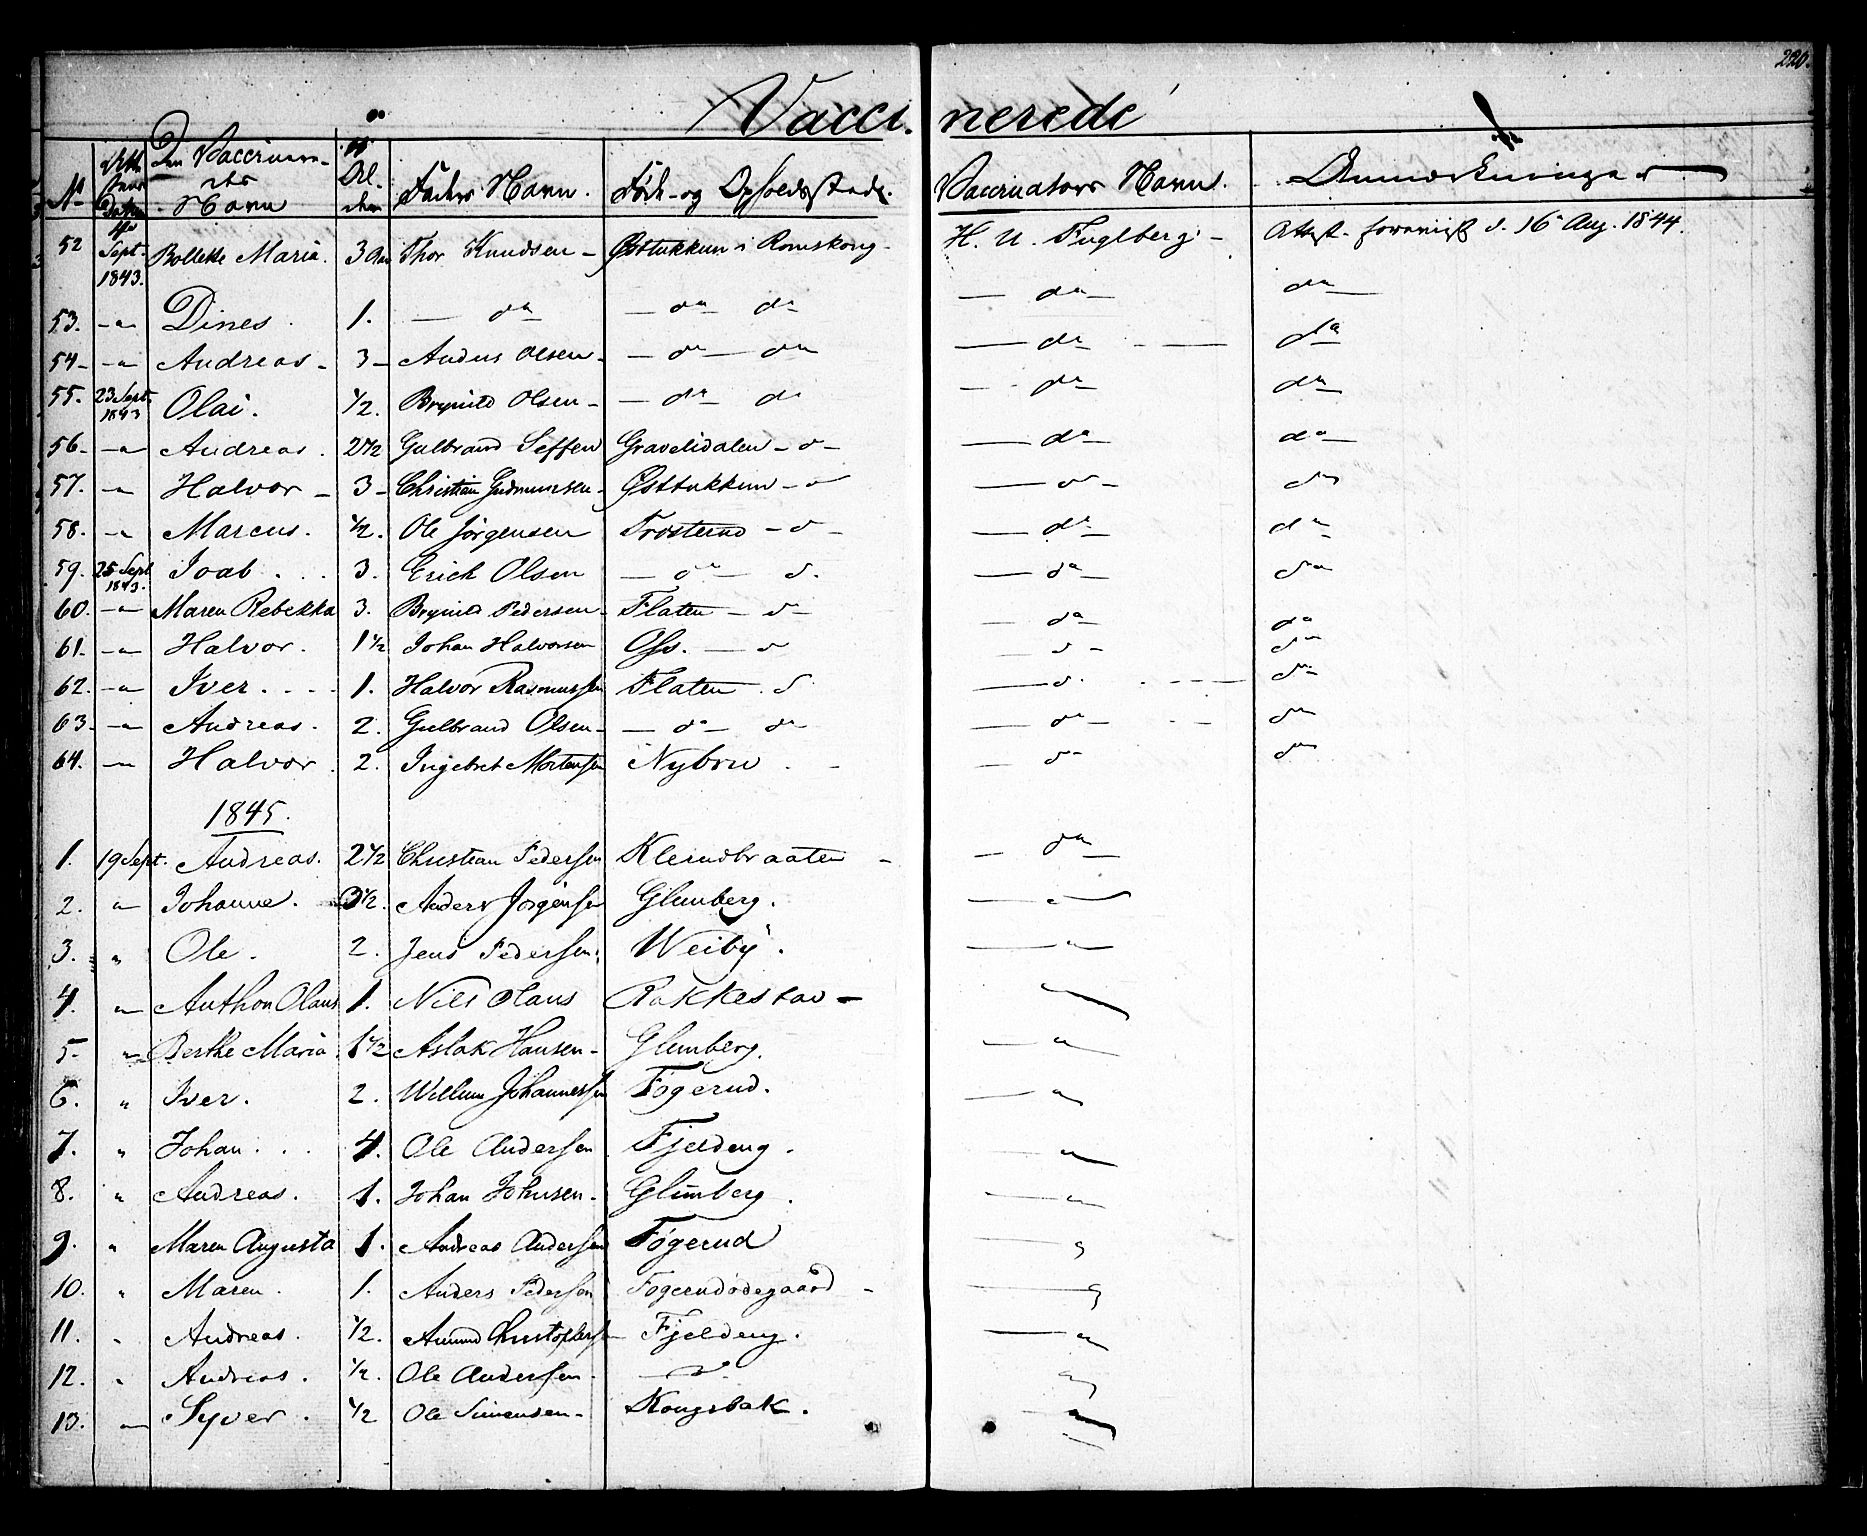 220.
Vaccinerede
No Den Vaccineredes Navn Alder Faders Navn. Føde- og Opholdssteds. Vaccinators Navn. Anmærkninger
52 Sept. 1843. Bollette Maria. 3 Aar Thor Knudsen - Østtukkun i Romskoug - H. U. Fuglberg - Attest foreviist d. 16 Aug. 1844.
53. - " - Dines. 1. — do — do do — do — do
54 - - " - Andreas - 3 - Anders Olsen - — do — do — do — do
55. 23 Sept. 1843 Olai. 1/2. Brynild Olsen - — do — do — do — do
56 - - " - Andreas. 2 1/2 Gulbrand Seffen Gravlidalen - do - — do — do
57. - " - Halvor - 3 - Christian Gudmunsen - Østtukkun - do — do - do
58. - " - Marcus. 1/2. Ole Jørgensen Trosterud - do - — do - do
59. 25 Sept 1843. Joab . . . 3. Erich Olsen — do — do. — do — do
60. - " - Maren Rebekka 3. Brynild Pedersen - Flaten - do - — do — do
61 - - " - Halvor. 1 1/2 Johan Halvorsen Oss. — do — do - do
62. - " - Iver . . . . 1. Halvor Rasmussen Flaten - do — do. do
63 - - " - Andreas. 2. Gulbrand Olsen - — do — do — do — do
64. - " - Halvor 2. Ingebret Mortensen Nybru — do do
1845.
1. 19 Sept. Andreas. 2 1/2 Christian Pedersen Klerudbraaten - — do —
2. " Johanne. 3 1/2. Anders Jørgensen Glemberg. — " —
3. " Ole. 2. Jens Pedersen. Weiby. — " —
4. " Anthon Olaus 1. Nils Olaus Rakkestad -
5 - " Berthe Maria. 1 1/2 Aslak Hansen - Glemberg. — " —
6. " Iver. 2. Willum Johannessen Føgerud. — " —
7. " Johan . . . 4. Ole Andersen Fjeldeng. — " —
8. " Andreas. 1. Johan Johnsen - Glimberg. — " —
9. " Maren Augusta 1. Andreas Andersen Føgerud — "
10. " Maren. 1. Anders Pedersen Føgerudødegaard - — "
11. " Andreas. 1/2. Amund Christophersen Fjeldeng. — "
12. " Andreas. 1/2. Ole Andersen. — do "
13. " Syver. 1/2 Ole Simensen - Kougsbak. "